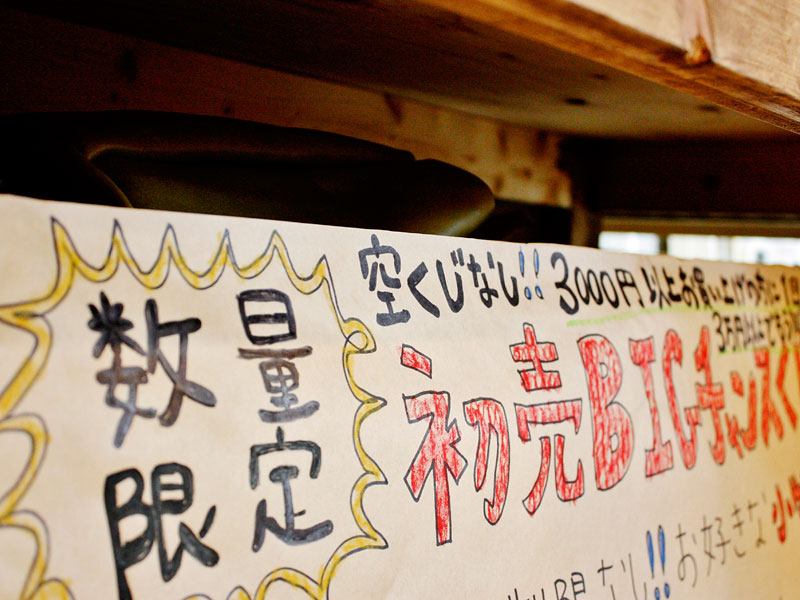 数量
限定
空くじなし!! 3000円以上お買い上げの方に1回
3万円以上で
初売BIGチャンスく
限なし!! お好きな小